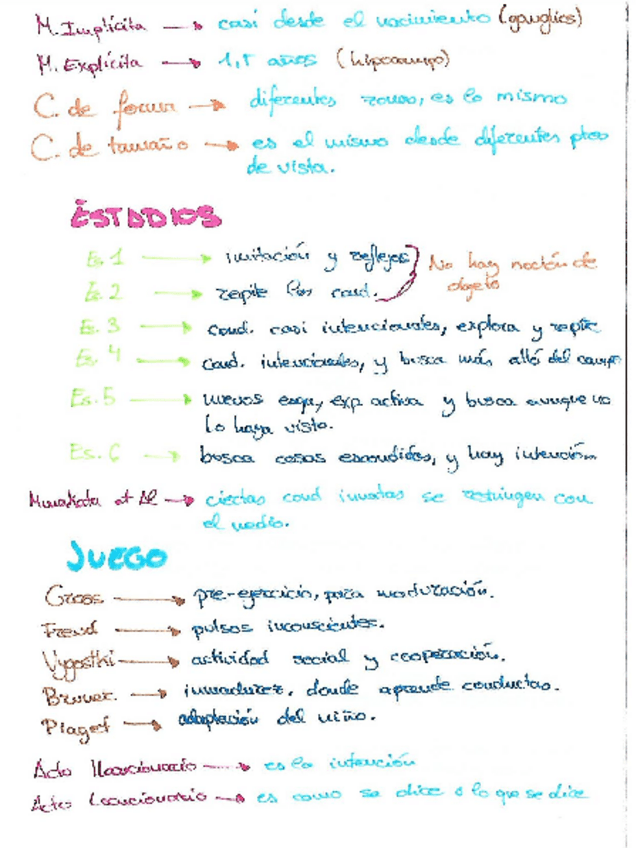 M. Implícita → casi desde el nacimiento (ganglios)
M. Explícita → 1,5 años (hipocampo)
C. de forma → diferentes zonas, es lo mismo
C. de tamaño → es el mismo desde diferentes ptos
de vista.
ESTADIOS
Es. 1 → imitación y reflejos
Es. 2 → repite las cond.
No hay noción de
objeto
Es. 3 → cond. casi intencionales, explora y repite
Es. 4 → cond. intencionales, y busca más allá del campo
Es. 5 → nuevos esqu, exp activa y busca aunque no
lo haya visto.
Es. 6 → busca cosas escondidas, y hay intención
et Al → ciertas cond innatas se restringen con
el medio.
JUEGO
Gross → pre-ejercicio, para maduración.
Freud → pulsos inconscientes.
Vygostki → actividad social y cooperación.
Bruner. → inmadurez, donde aprende conductas.
Piaget → adaptación del niño.
Acto Ilocucionario → es la intención
Actos Locucionario → es como se dice o lo que se dice